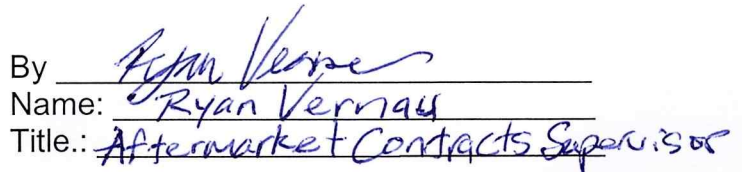 By Ryan
Name: Ryan Vernau
Title.: Aftermarket Contracts Supervisor